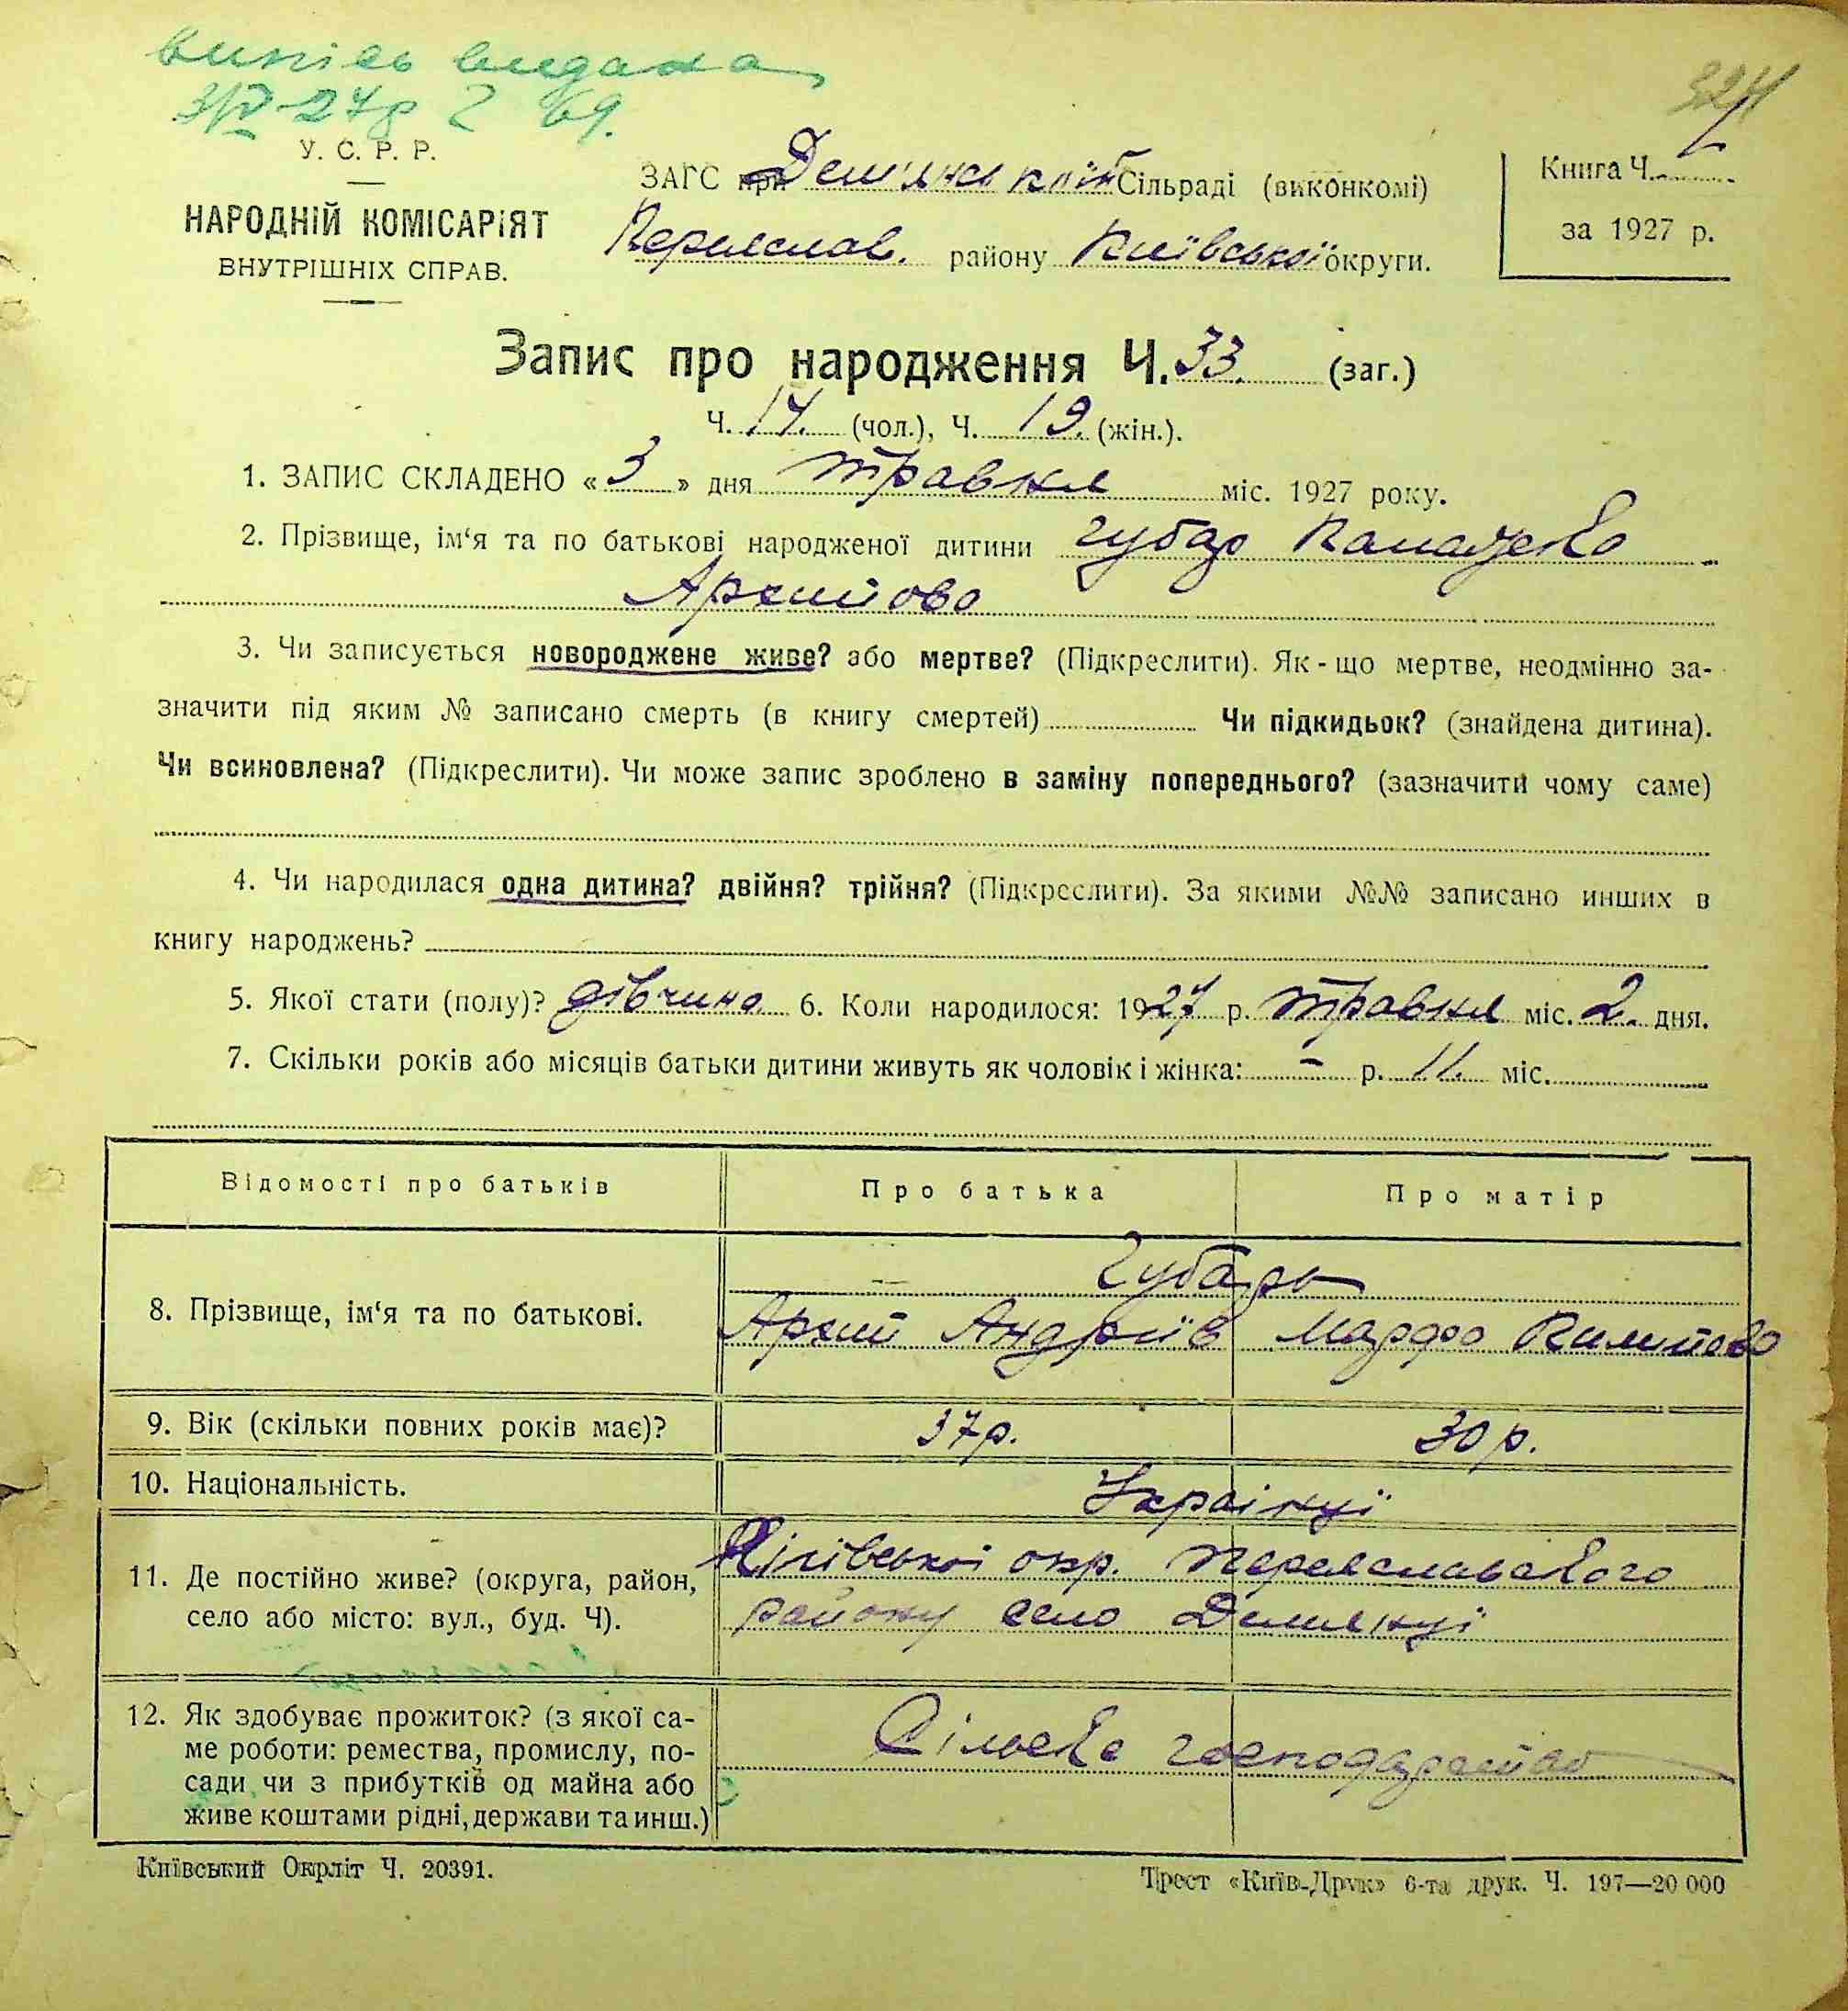 випісь видана
3/V-27р 2 69.
324
У. С. Р. Р.
НАРОДНІЙ КОМІСАРІЯТ
ВНУТРІШНІХ СПРАВ.
ЗАГС при Дем'янської Сільраді (виконкомі)
Переяслав. району Київської округи.
Книга Ч.
за 1927 р.
Запис про народження Ч. 33. (заг.)
Ч. 14. (чол.), Ч. 19. (жін.).
1. ЗАПИС СКЛАДЕНО «3» дня травня міс. 1927 року.
2. Прізвище, ім‘я та по батькові народженої дитини Губар
Архипова
3. Чи записується новороджене живе? або мертве? (Підкреслити). Як-що мертве, неодмінно за-
значити під яким № записано смерть (в книгу смертей) Чи підкидьок? (знайдена дитина).
Чи всиновлена? (Підкреслити). Чи може запис зроблено в заміну попереднього? (зазначити чому саме)
4. Чи народилася одна дитина? двійня? трійня? (Підкреслити). За якими №№ записано инших в
книгу народжень?
5. Якої стати (полу)? дівчина 6. Коли народилося: 1927 р. травня міс. 2. дня.
7. Скільки років або місяців батьки дитини живуть як чоловік і жінка: – р. 11. міс.
Відомості про батьків Про батька Про матір
8. Прізвище, ім‘я та по батькові. Губарь
Архип Андріїв Марфа Пилипова
9. Вік (скільки повних років має)? 37р. 30р.
10. Національність. Українці
11. Де постійно живе? (округа, район, Київської окр. Переяславського
село або місто: вул., буд. Ч). району село Демянці
12. Як здобуває прожиток? (з якої са-
ме роботи: ремества, промислу, по- Сільське господарство
сади чи з прибутків од майна або
живе коштами рідні, держави та инш.)
Київський Окрліт Ч. 20391.
Трест «Київ-Друк» 6-та друк. Ч. 197—20 000